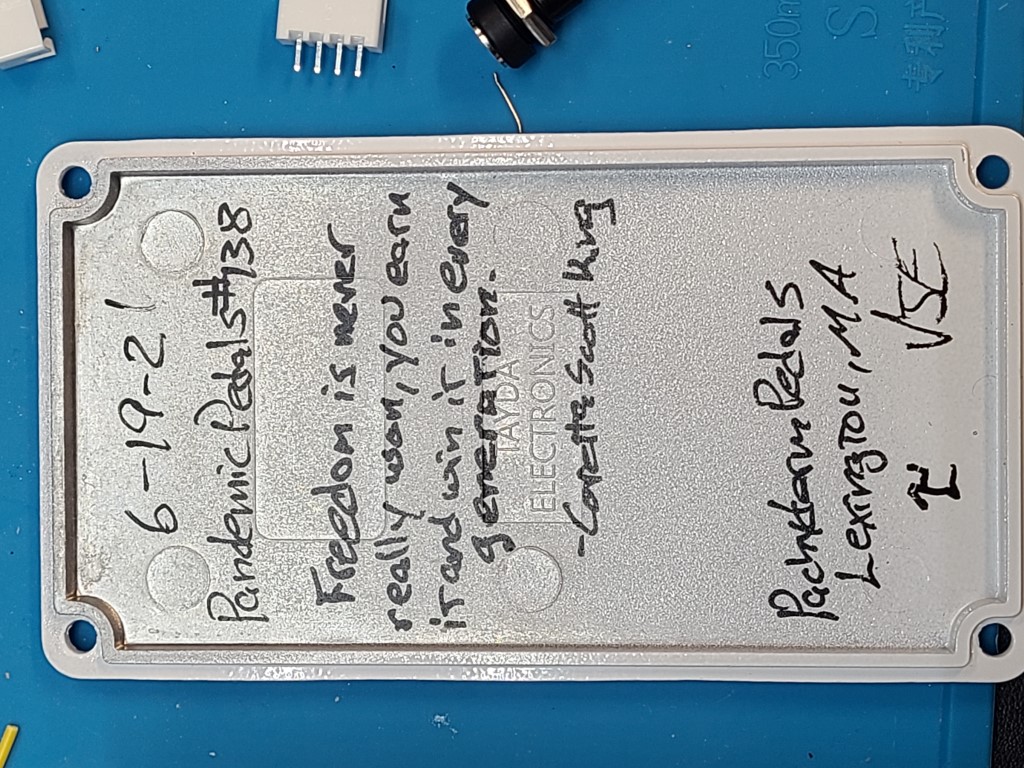 6-19-21
Pandemic Pedals #138
Freedom is never
really won, you earn
it and win it in every
generation.
TAYDA
ELECTRONICS
-Coretta Scott King
Pedals
Lexington, MA
VSE
350m
S
专利产